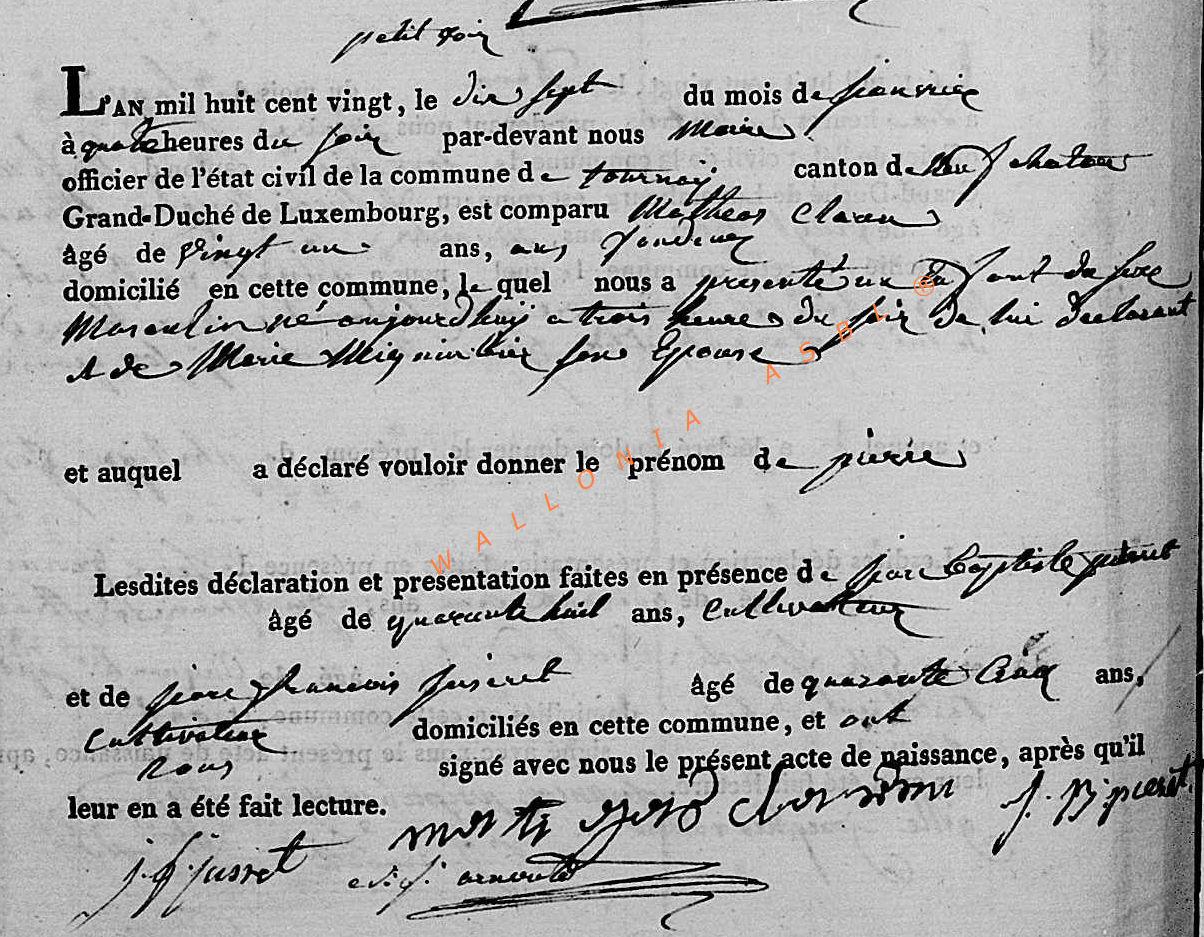 petit voir
L'AN mil huit cent vingt, le dix sept du mois de janvier
à quatre heures du soir par-devant nous Maire
officier de l'état civil de la commune de tournay canton de Neufchateau
Grand-Duché de Luxembourg, est comparu Matheas
âgé de vingt un ans,
domicilié en cette commune, le quel nous a presenté un Enfant du sexe
Masculin né aujourd'huij a trois heures du soir de lui declarant
et de Marie son Epouse
et auquel a déclaré vouloir donner le prénom de pierre
Lesdites déclaration et presentation faites en présence de jean Baptiste
âgé de quarante huit ans, Cultivateur
et de jean francois âgé de quarante Cinq ans,
Cultivateur domiciliés en cette commune, et ont
nous signé avec nous le présent acte de naissance, après qu'il
leur en a été fait lecture.
J. B
j. f. jusseret arnould
WALLONIA ASBL ®